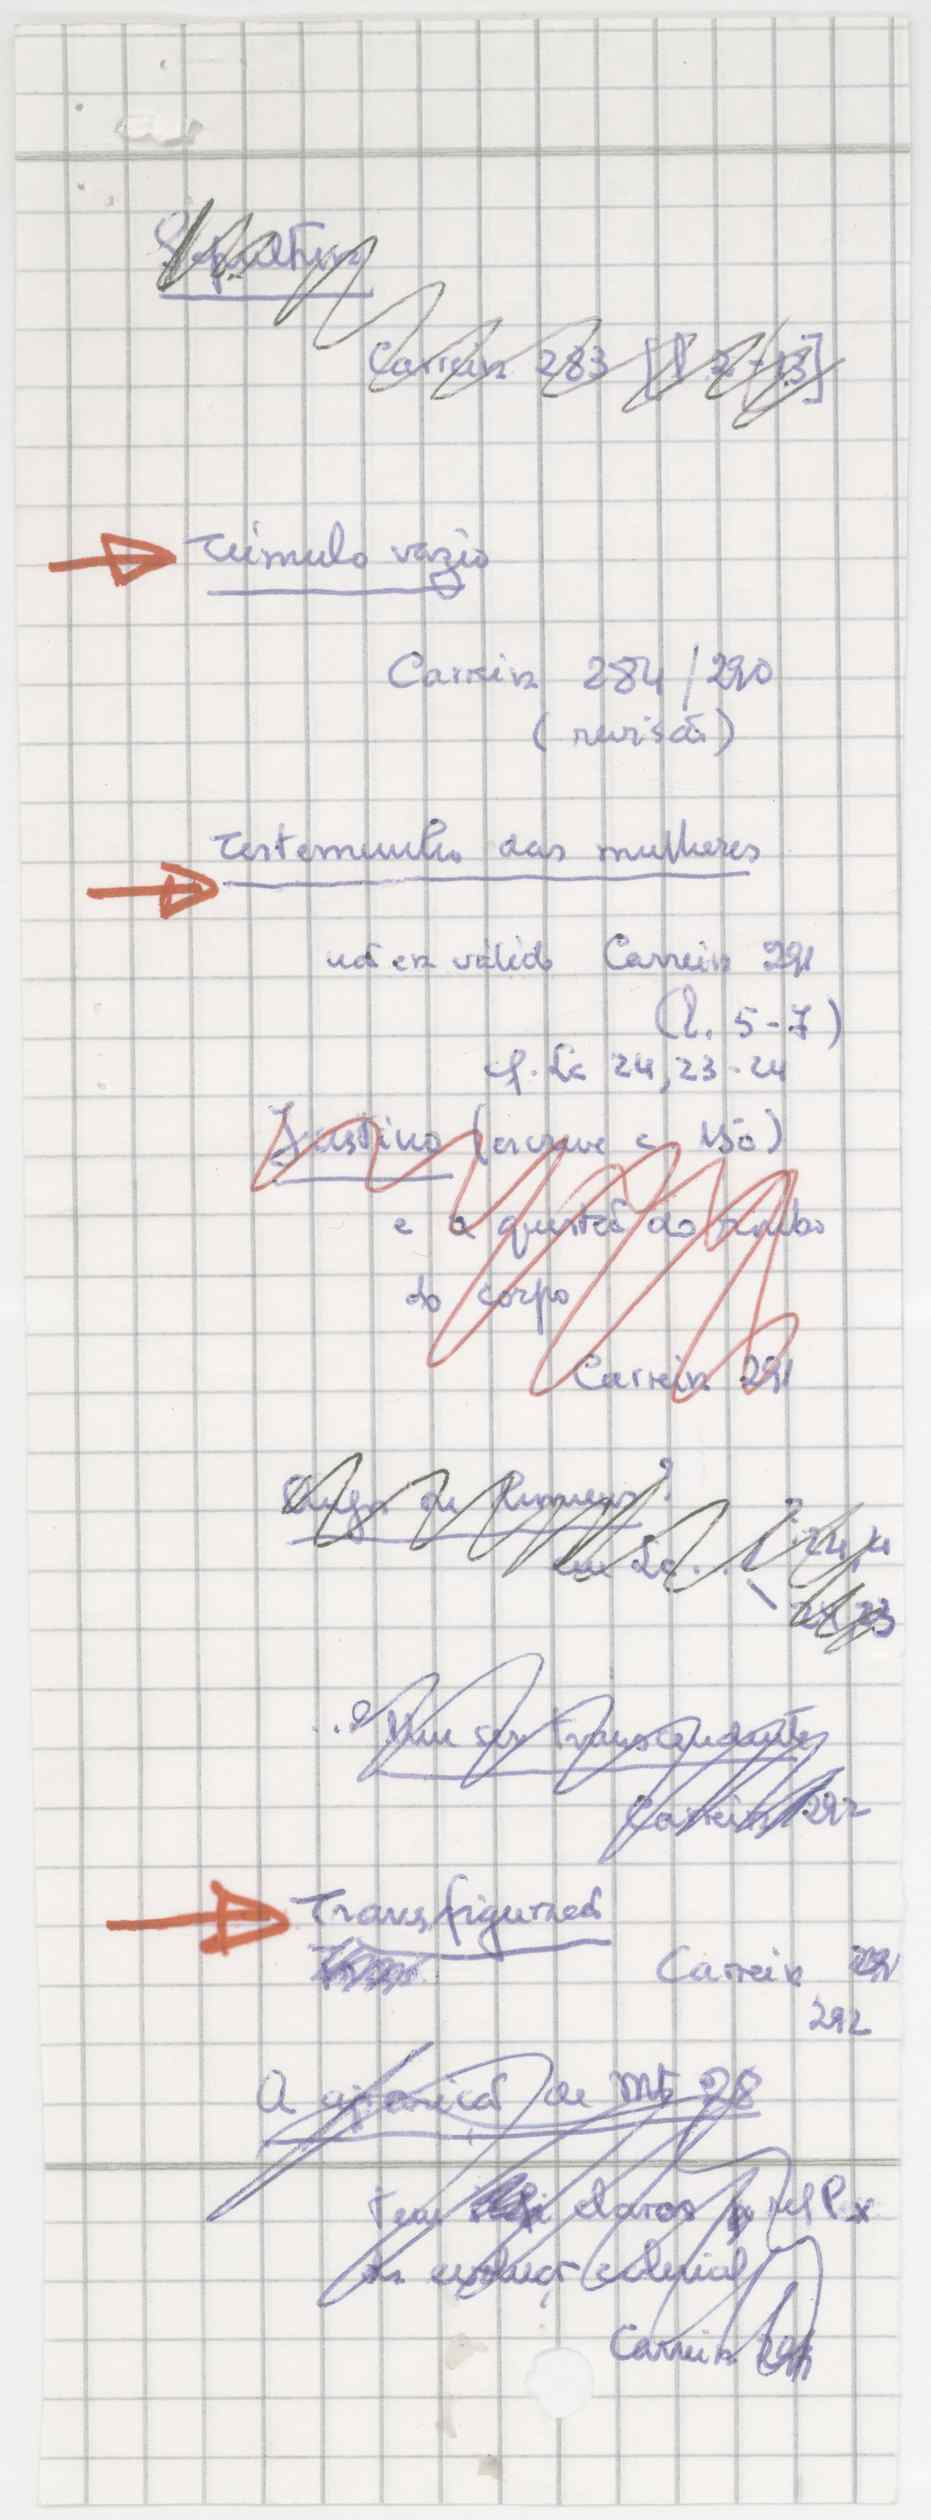 Sepultura
Carreira 283 [l 2-13]
Túmulo vazio
Carreira 284/290
(revisão)
Testemunho das mulheres
não era válido Carreira 291
(l. 5-7)
cf. Lc 24,23-24
Justino (escreve c 150)
e a questão do roubo
do corpo
Carreira 291
de
em Lc. 24,4
24,23
...? Num ser transcendente
Carreira 292
Transfigurado
Carreira 291
292
A aparição de Mt 28
tem claros
Carreira 291